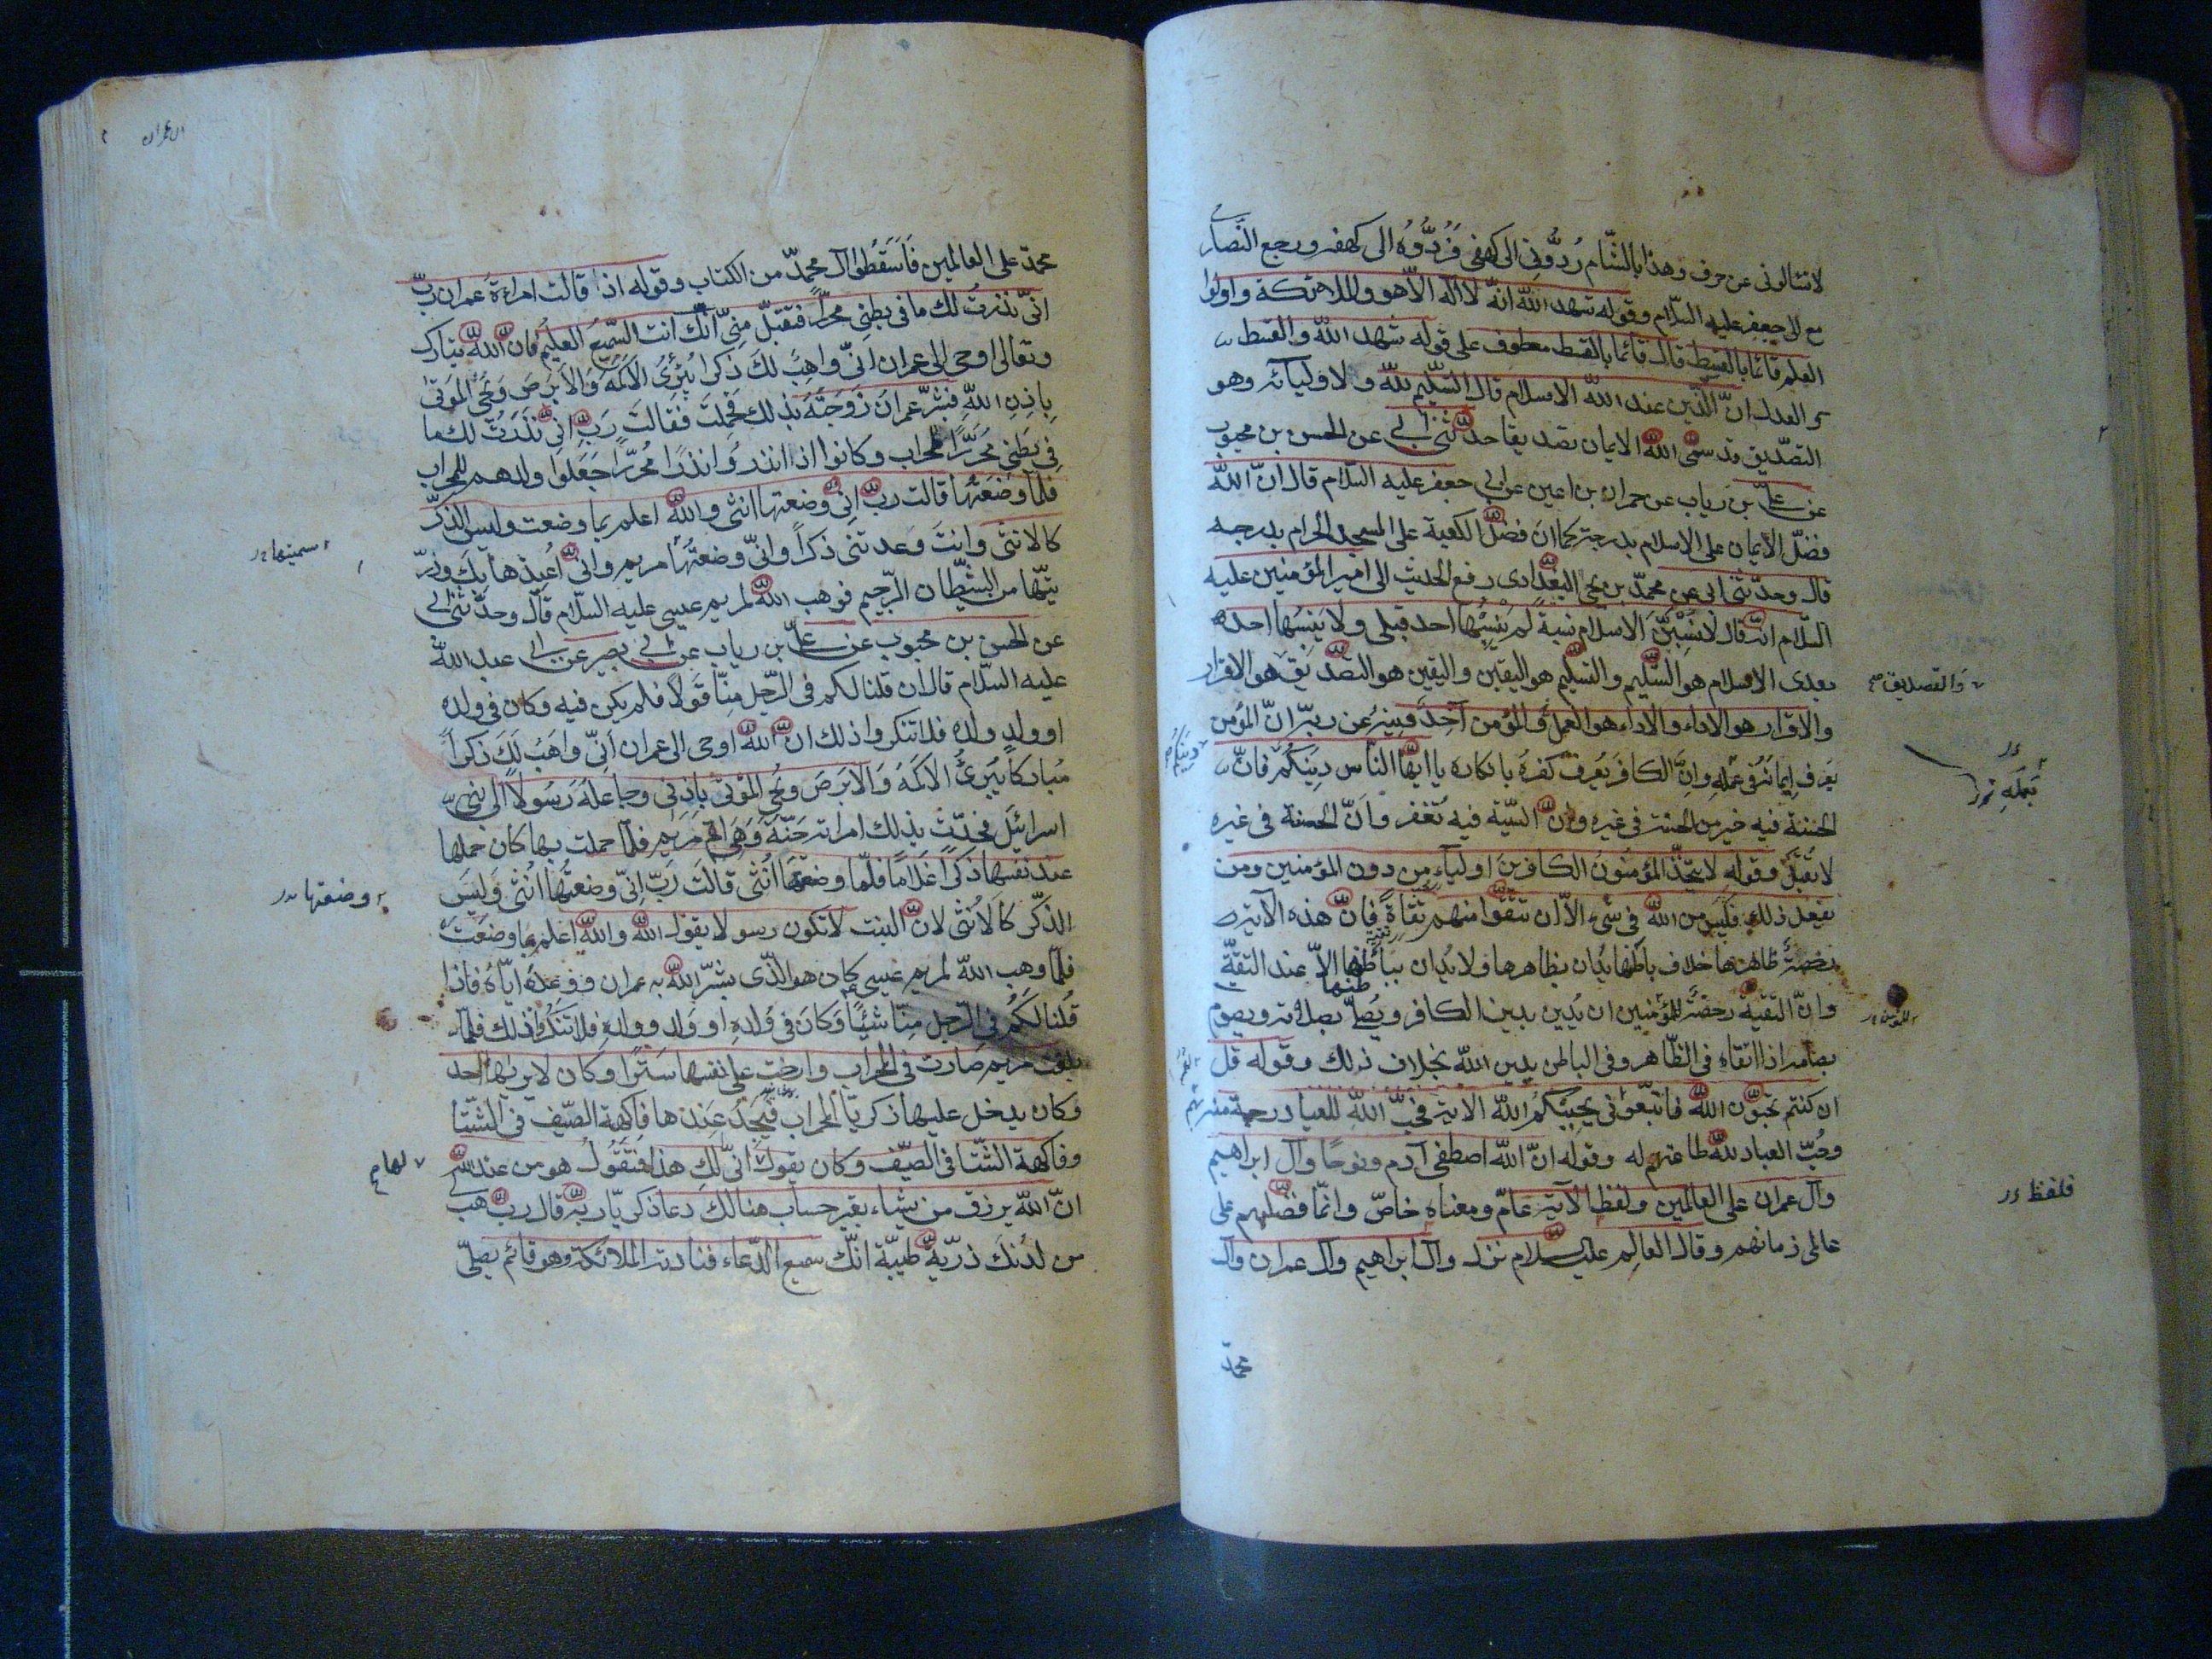 لا تسالونى عن حرف وهذا بالشام ردونى الى كهفى فردوه الى كهفه ورجع النصارى
مع لابى جعفر عليه السلام وقوله شهد الله انه لا اله الا هو والملائكة واولوا
العلم قائما بالقسط قال قائما بالقسط معطوف على قوله شهد الله والقسط
العدل ان الدين عند الله الاسلام قال التسليم لله ولاوليائه وهو
التصديق وقد سمى الله الايمان تصديقا حدثنى ابى عن الحسن بن محبوب
عن على بن رياب عن حمران بن اعين عن ابى جعفر عليه السلام قال ان الله
فضل الايمان على الاسلام بدرجة كما ان فضل الكعبة على المسجد الحرام بدرجه
قال وحدثنى ابى عن محمد بن يحيى البغدادى رفع الحديث الى امير المؤمنين عليه
السلام انه قال لانسبن الاسلام نسبة لم ينسبها احد قبلى ولا ينسبها احد
بعدى الاسلام هو التسليم والتسليم هو اليقين واليقين هو التصديق هو الاقرار
والتصديق صح
والاقرار هو الاداء والاداء هو العمل والمؤمن اخذ دينه عن ربه ان المؤمن
يعرف ايمانه فى عمله وان الكافر يعرف كفره بانكاره يا ايها الناس دينكم فان
دينكم
بعمله
الحسنة فيه خير من الحسنة فى غيره وان السيئة فيه تغفر وان الحسنة فى غيره
لا تقبل وقوله لا يتخذ المؤمنون الكافرين اولياء من دون المؤمنين ومن
يفعل ذلك فليس من الله فى شىء الا ان تتقوا منهم تقاة فان هذه الآية
رخصة ظاهرها خلاف باطنها يدان بظاهرها ولا يدان بباطنها الا عند التقية
وان التقية رخصة للمؤمنين ان يدين بدين الكافر ويصلى بصلاته ويصوم
للمؤمن
بصيامه اذا اتقاه فى الظاهر وفى الباطن يدين الله بخلاف ذلك وقوله قل
ان كنتم تحبون الله فاتبعونى يحببكم الله الاية فحب الله للعباد رحمة منه لهم
وحب العباد لله طاعتهم له وقوله ان الله اصطفى آدم ونوحا وآل ابراهيم
وآل عمران على العالمين ولفظ الآية عام ومعناه خاص وانما فضلهم على
فلفظ
عالمى زمانهم وقال العالم عليه السلام نزل وآل ابراهيم وآل عمران وآل
محمد
آل عمران
محمد على العالمين فاسقطوا آل محمد من الكتاب وقوله اذا قالت امراءة عمران رب
انى نذرت لك ما فى بطنى محررا فتقبل منى انك انت السميع العليم فان الله تبارك
وتعالى اوحى الى عمران انى واهب لك ذكرا يبرئ الاكمه والابرص ويحيى الموتى
باذن الله فبشر عمران زوجته بذلك فحملت فقالت رب انى نذرت لك ما
فى بطنى محررا للمحراب وكانوا اذا نذروا نذرا محررا جعلوا ولدهم للمحراب
فلما وضعتها قالت رب انى وضعتها انثى والله اعلم بما وضعت وليس الذكر
كالانثى وانت وعدتنى ذكرا وانى وضعتها مريم وانى اعيذها بك وذر
سميتها
يتها من الشيطان الرجيم فوهب الله لمريم عيسى عليه السلام قال وحدثنى ابى
عن الحسن بن محبوب عن على بن رياب عن ابى بصير عن ابى عبد الله
عليه السلام قال ان قلنا لكم فى الرجل منا قولا فلم يكن فيه وكان فى ولده
او ولد ولده فلا تنكروا ذلك ان الله اوحى الى عمران انى واهب لك ذكرا
مباركا يبرئ الاكمه والابرص ويحيى الموتى باذنى وجاعله رسولا الى بنى
اسرائيل فحدث بذلك امراته حنة وهى ام مريم فلما حملت بها كان حملها
عند نفسها ذكرا غلاما فلما وضعتها انثى قالت رب انى وضعتها انثى وليس
وضعتها
الذكر كالانثى لان البنت لا تكون رسولا يقول الله والله اعلم بما وضعت
فلما وهب الله لمريم عيسى كان هو الذى بشر الله به عمران ووعده اياه فاذا
قلنا لكم فى الرجل منا شيئا وكان فى ولده او ولد ولده فلا تنكروا ذلك فلما
بلغت مريم صارت فى المحراب وارخت على نفسها سترا وكان لا يريها احد
وكان يدخل عليها زكريا المحراب فيجد عندها فاكهة الصيف فى الشتا
وفاكهة الشتا فى الصيف وكان يقول انى لك هذا فتقول هو من عند الله
لها
ان الله يرزق من يشاء بغير حساب هنالك دعا زكريا ربه قال رب هب
من لدنك ذرية طيبة انك سميع الدعاء فنادته الملائكة وهو قائم يصلى